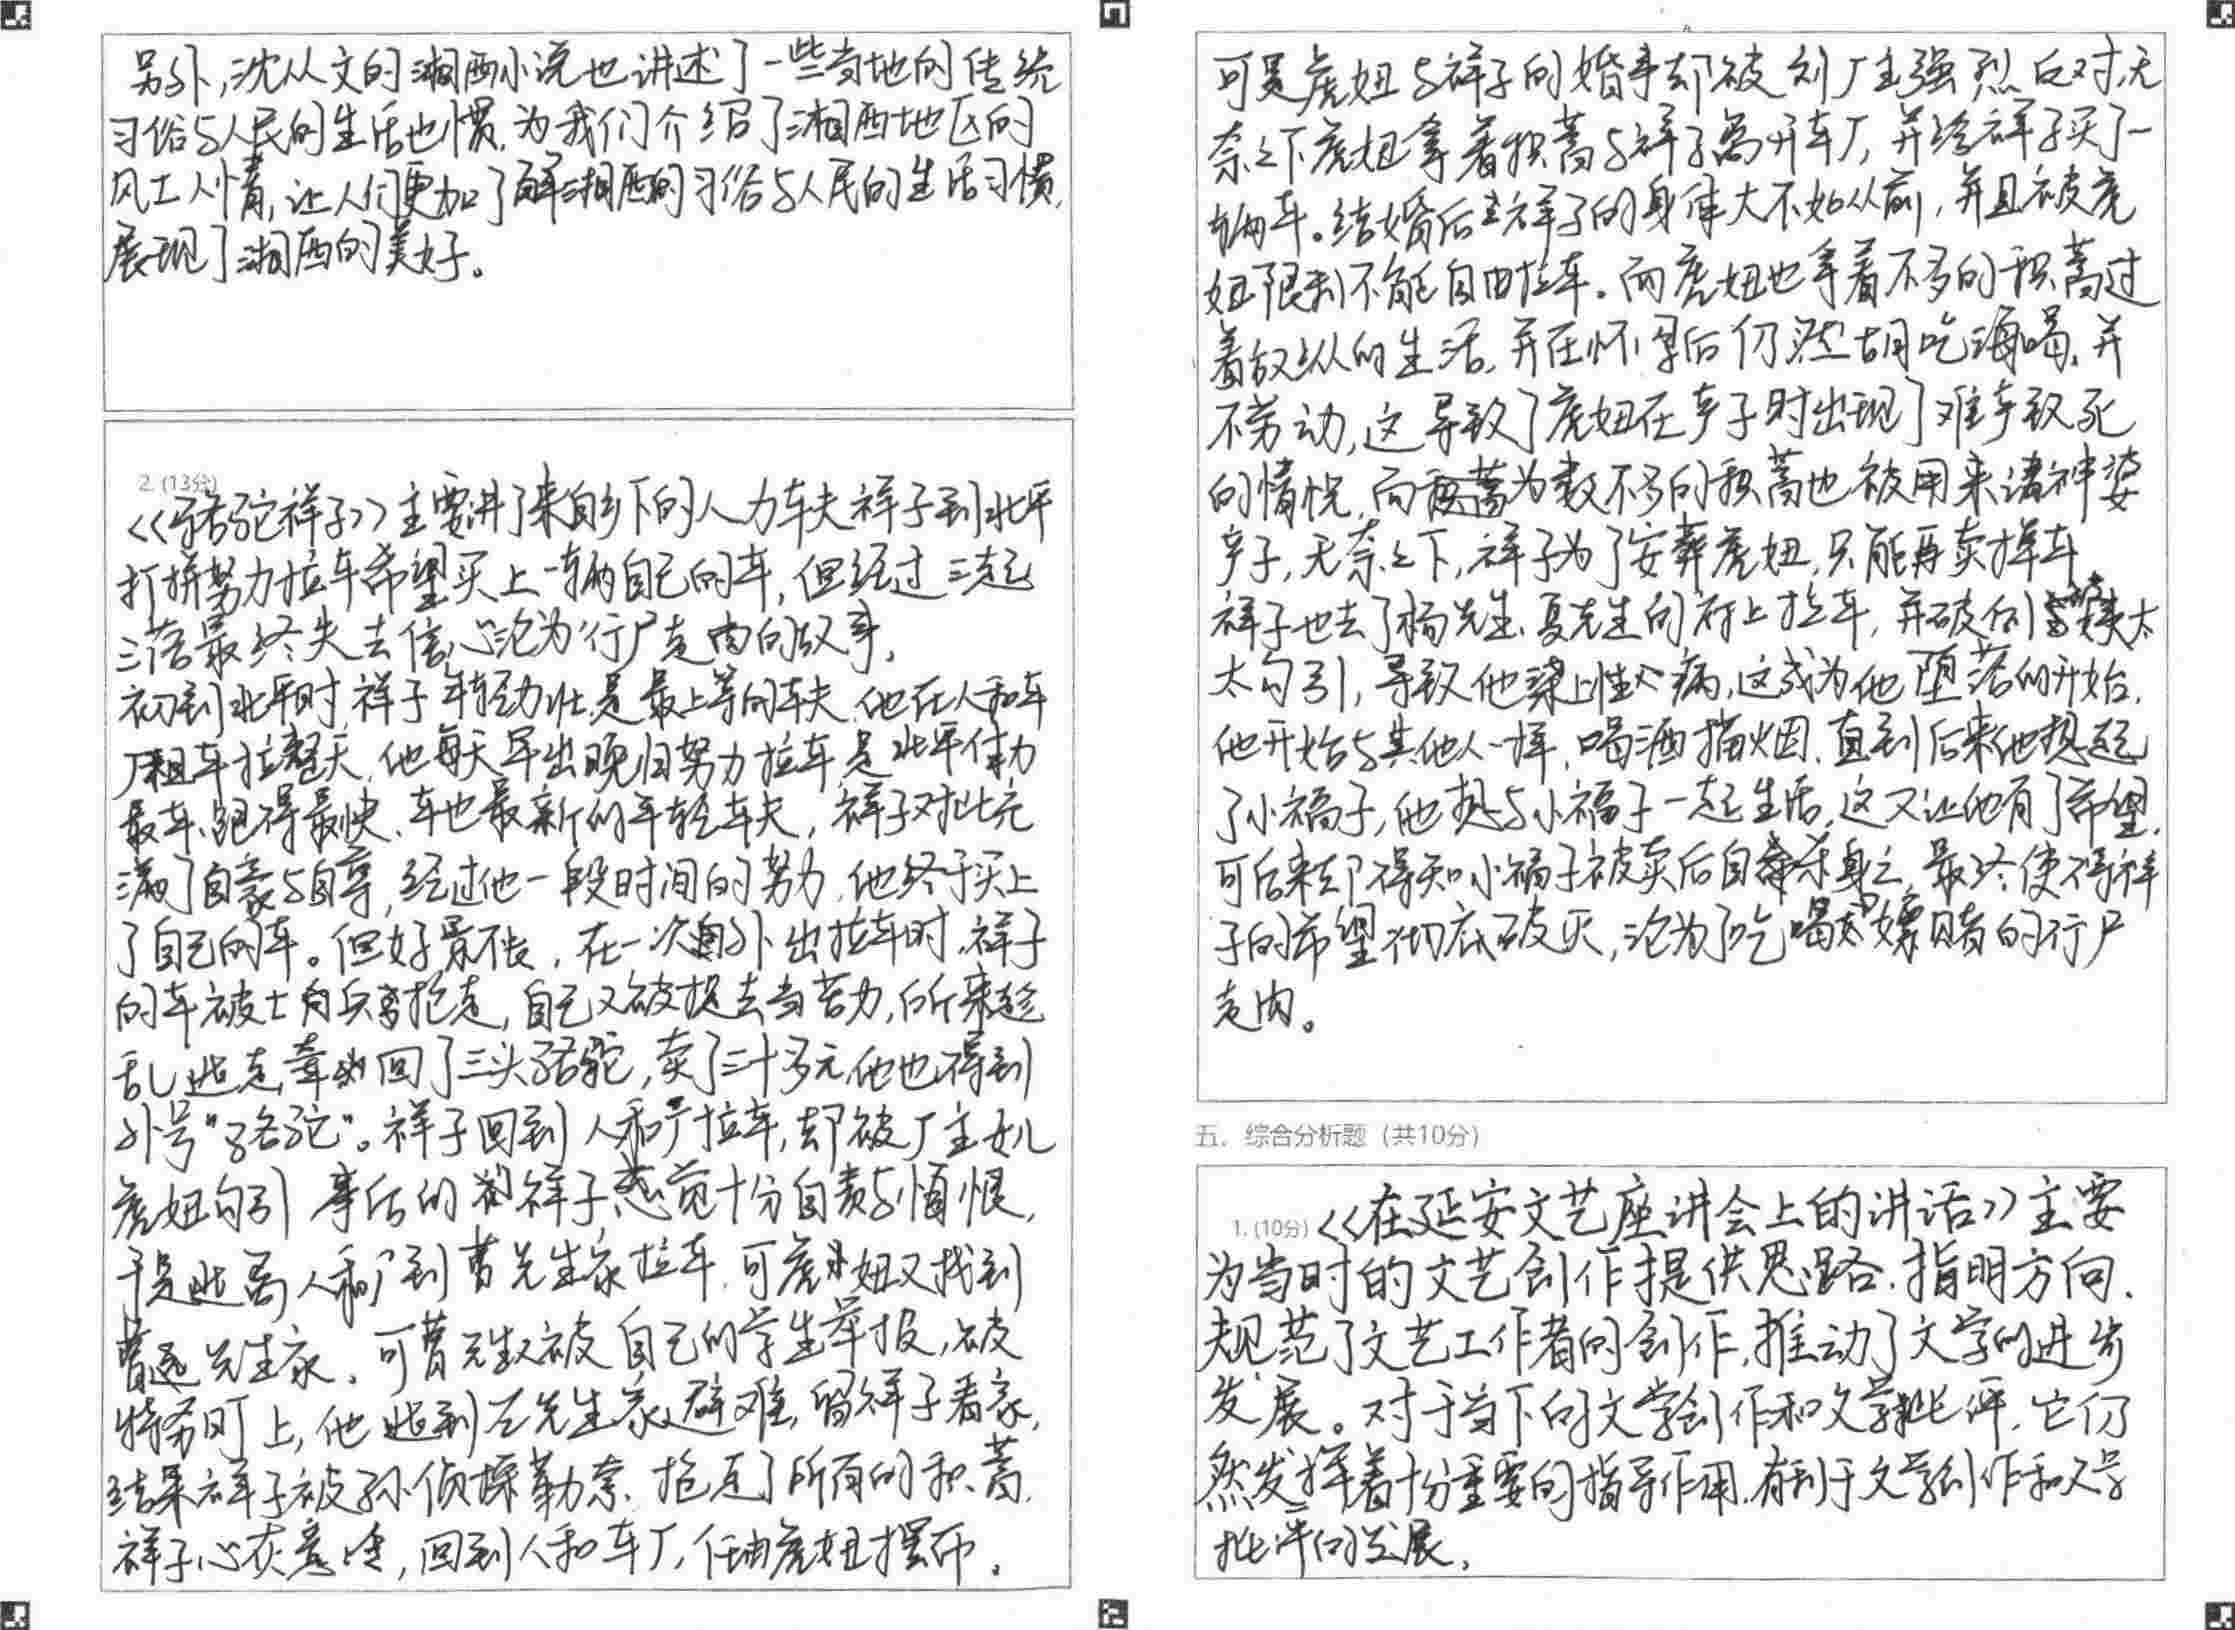 另外，沈从文的湘西小说也讲述了一些当地的传统
习俗与人民的生活也惯，为我们介绍了湘西地区的
风土人情，让人们更加了解湘西的习俗与人民的生活习惯，
展现了湘西的美好。
2. (13分)
《骆驼祥子》主要讲了来自乡下的人力车夫祥子到北平
打拼努力拉车希望买上一辆自己的车，但经过三起
三落最终失去信心沦为行尸走肉的故事，
初到北平时，祥子年轻力壮，是最上等的车夫，他在人和车
厂租车拉整天，他每天早出晚归努力拉车是北平体力
最车、跑得最快、车也最新的年轻车夫，祥子对此充
满了自豪与自尊，经过他一段时间的努力，他终于买上
了自己的车。但好景不长，在一次外出拉车时，祥子
的车被士兵抢走，自己又被捉去当苦力，后来趁
乱逃走，牵回了三头骆驼，卖了三十多元，他也得到
外号“骆驼”。祥子回到人和厂拉车，却被厂主女儿
虎妞勾引 事后的祥子感觉十分自责与悔恨，
于是逃离人和厂到曹先生家拉车，可虎妞又找到
曹先生家。可曹先生又被自己的学生举报，被
特务盯上，他逃到左先生家避难，留祥子看家，
结果祥子被孙侦探勒索、抢走了所有的积蓄，
祥子心灰意冷，回到人和车厂，任由虎妞摆布。
可是虎妞与祥子的婚事却被刘厂主强烈反对，无
奈之下虎妞拿着积蓄与祥子离开车厂，并给祥子买了一
辆车。结婚后祥子的身体大不如从前，并且被虎
妞限制不能自由拉车。而虎妞也拿着不多的积蓄过
着放纵的生活，并在怀孕后仍然胡吃海喝，并
不劳动，这导致了虎妞在产子时出现了难产致死
的情况，而为数不多的积蓄也被用来请神婆
产子，无奈之下，祥子为了安葬虎妞，只能再卖掉车，
祥子也去了杨先生、夏先生的府上拉车，并被夏太
太勾引，导致他染上性病，这成为他堕落的开始，
他开始与其他人一样，喝酒抽烟，直到后来他想起
了小福子，他想与小福子一起生活，这又让他有了希望，
可后来却得知小福子被卖后自杀身亡，最终使得祥
子的希望彻底破灭，沦为了吃喝嫖赌的行尸
走肉。
五. 综合分析题（共10分）
1. (10分)《在延安文艺座讲会上的讲话》主要
为当时的文艺创作提供思路，指明方向，
规范了文艺工作者的创作，推动了文学的进步
发展。对于当下的文学创作和文学批评，它仍
然发挥着十分重要的指导作用，有利于文学创作和文学
批评的发展，